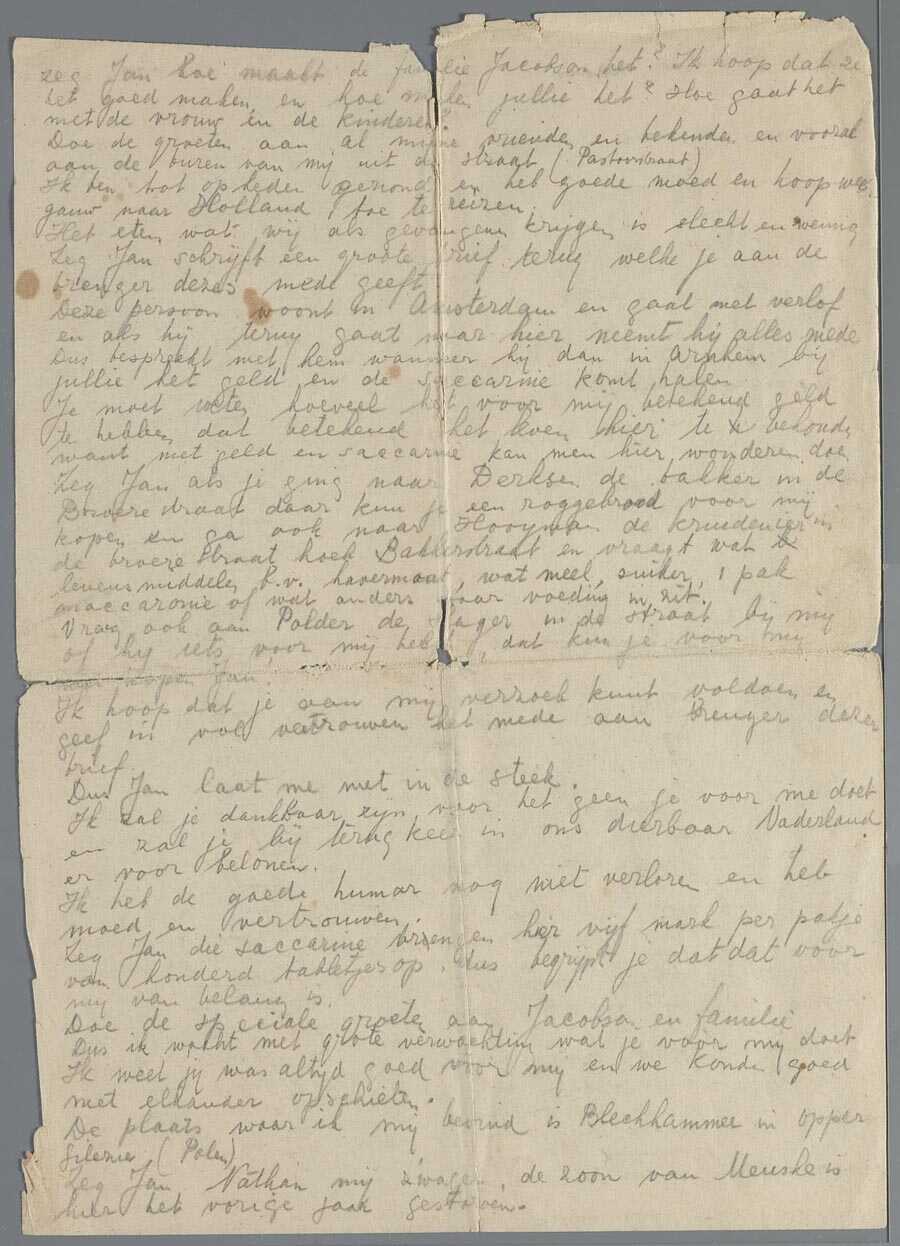 zeg Jan hoe maakt de familie Jacobson het? Ik hoop dat ze
het goed maken en hoe maken jullie het? Hoe gaat het
met de vrouw en de kinderen?
Doe de groeten aan al mijne vrienden en bekenden en vooral
aan de buren van mij uit de straat (Pastoorstraat)
Ik ben tot op heden gezond en heb goede moed en hoop weer
gauw naar Holland toe te reizen.
Het eten wat wij als gevangenen krijgen is slecht en weinig
Zeg Jan schrijft een groote brief terug welke je aan de
brenger dezes mede geeft
Deze persoon woont in Amsterdam en gaat met verlof
en als hij terug gaat naar hier neemt hij alles mede
Dus bespreekt met hem wanneer hij dan in Arnhem bij
jullie het geld en de saccarine komt halen
Je moet weten hoeveel het voor mij betekend geld
te hebben dat betekend het leven hier te behouden
want met geld en saccarine kan men hier wonderen doen
Zeg Jan als je ging naar Derksen de bakker in de
Broerestraat daar kun je een roggebrood voor mij
kopen en ga ook naar Hooyman de kruidenier in
de broerestraat hoek Bakkerstraat en vraagt wat
levensmiddelen b.v. havermout, wat meel, suiker, 1 pak
maccaronie of wat anders waar voeding in zit.
Vraag ook aan Polder de slager in de straat bij mij
of hij iets voor mij heeft, dat kun je voor mij
kopen Jan
Ik hoop dat je aan mij verzoek kunt voldoen en
geef in vol vertrouwen het mede aan brenger dezer
brief.
Dus Jan laat me niet in de steek.
Ik zal je dankbaar zijn voor het geen je voor me doet
en zal je bij terugkeer in ons dierbaar Vaderland
er voor belonen.
Ik heb de goede humor nog niet verloren en heb
moed en vertrouwen.
Zeg Jan die saccarine brengen hier vijf mark per pakje
van honderd tabletjes op. dus begrijpt je dat dat voor
mij van belang is.
Doe de speciale groeten aan Jacobson en familie
Dus ik wacht met grote verwachting wat je voor mij doet
Ik weet jij was altijd goed voor mij en we konden goed
met elkander opschieten.
De plaats waar ik mij bevind is Blechhammer in opper
Silezie (Polen)
Zeg Jan Nathan mij zwager, de zoon van Meuske is
hier het vorige jaar gestorven.